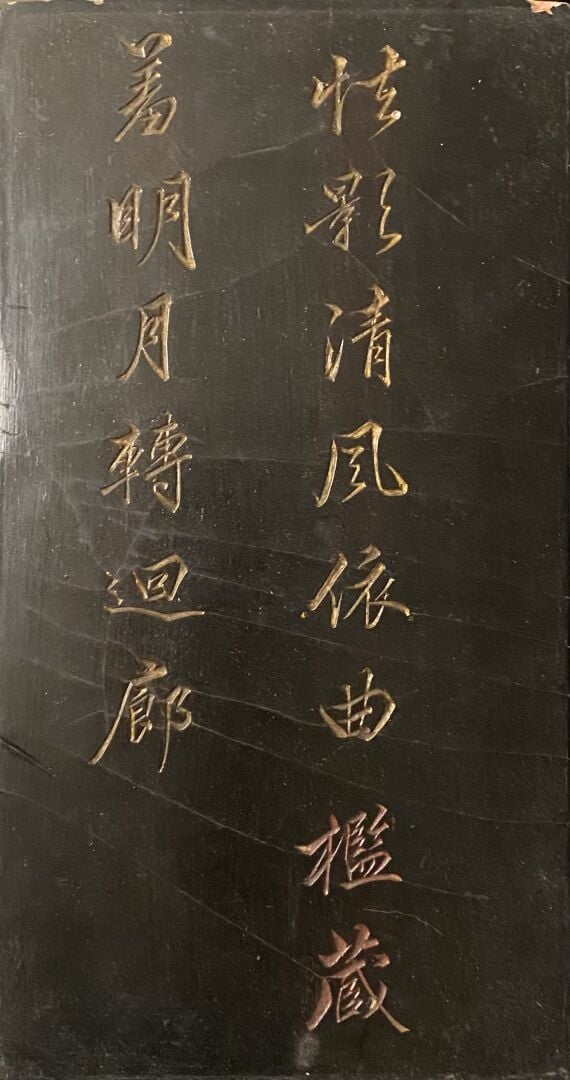 怯影清風依曲檻藏
羞明月轉迴廊